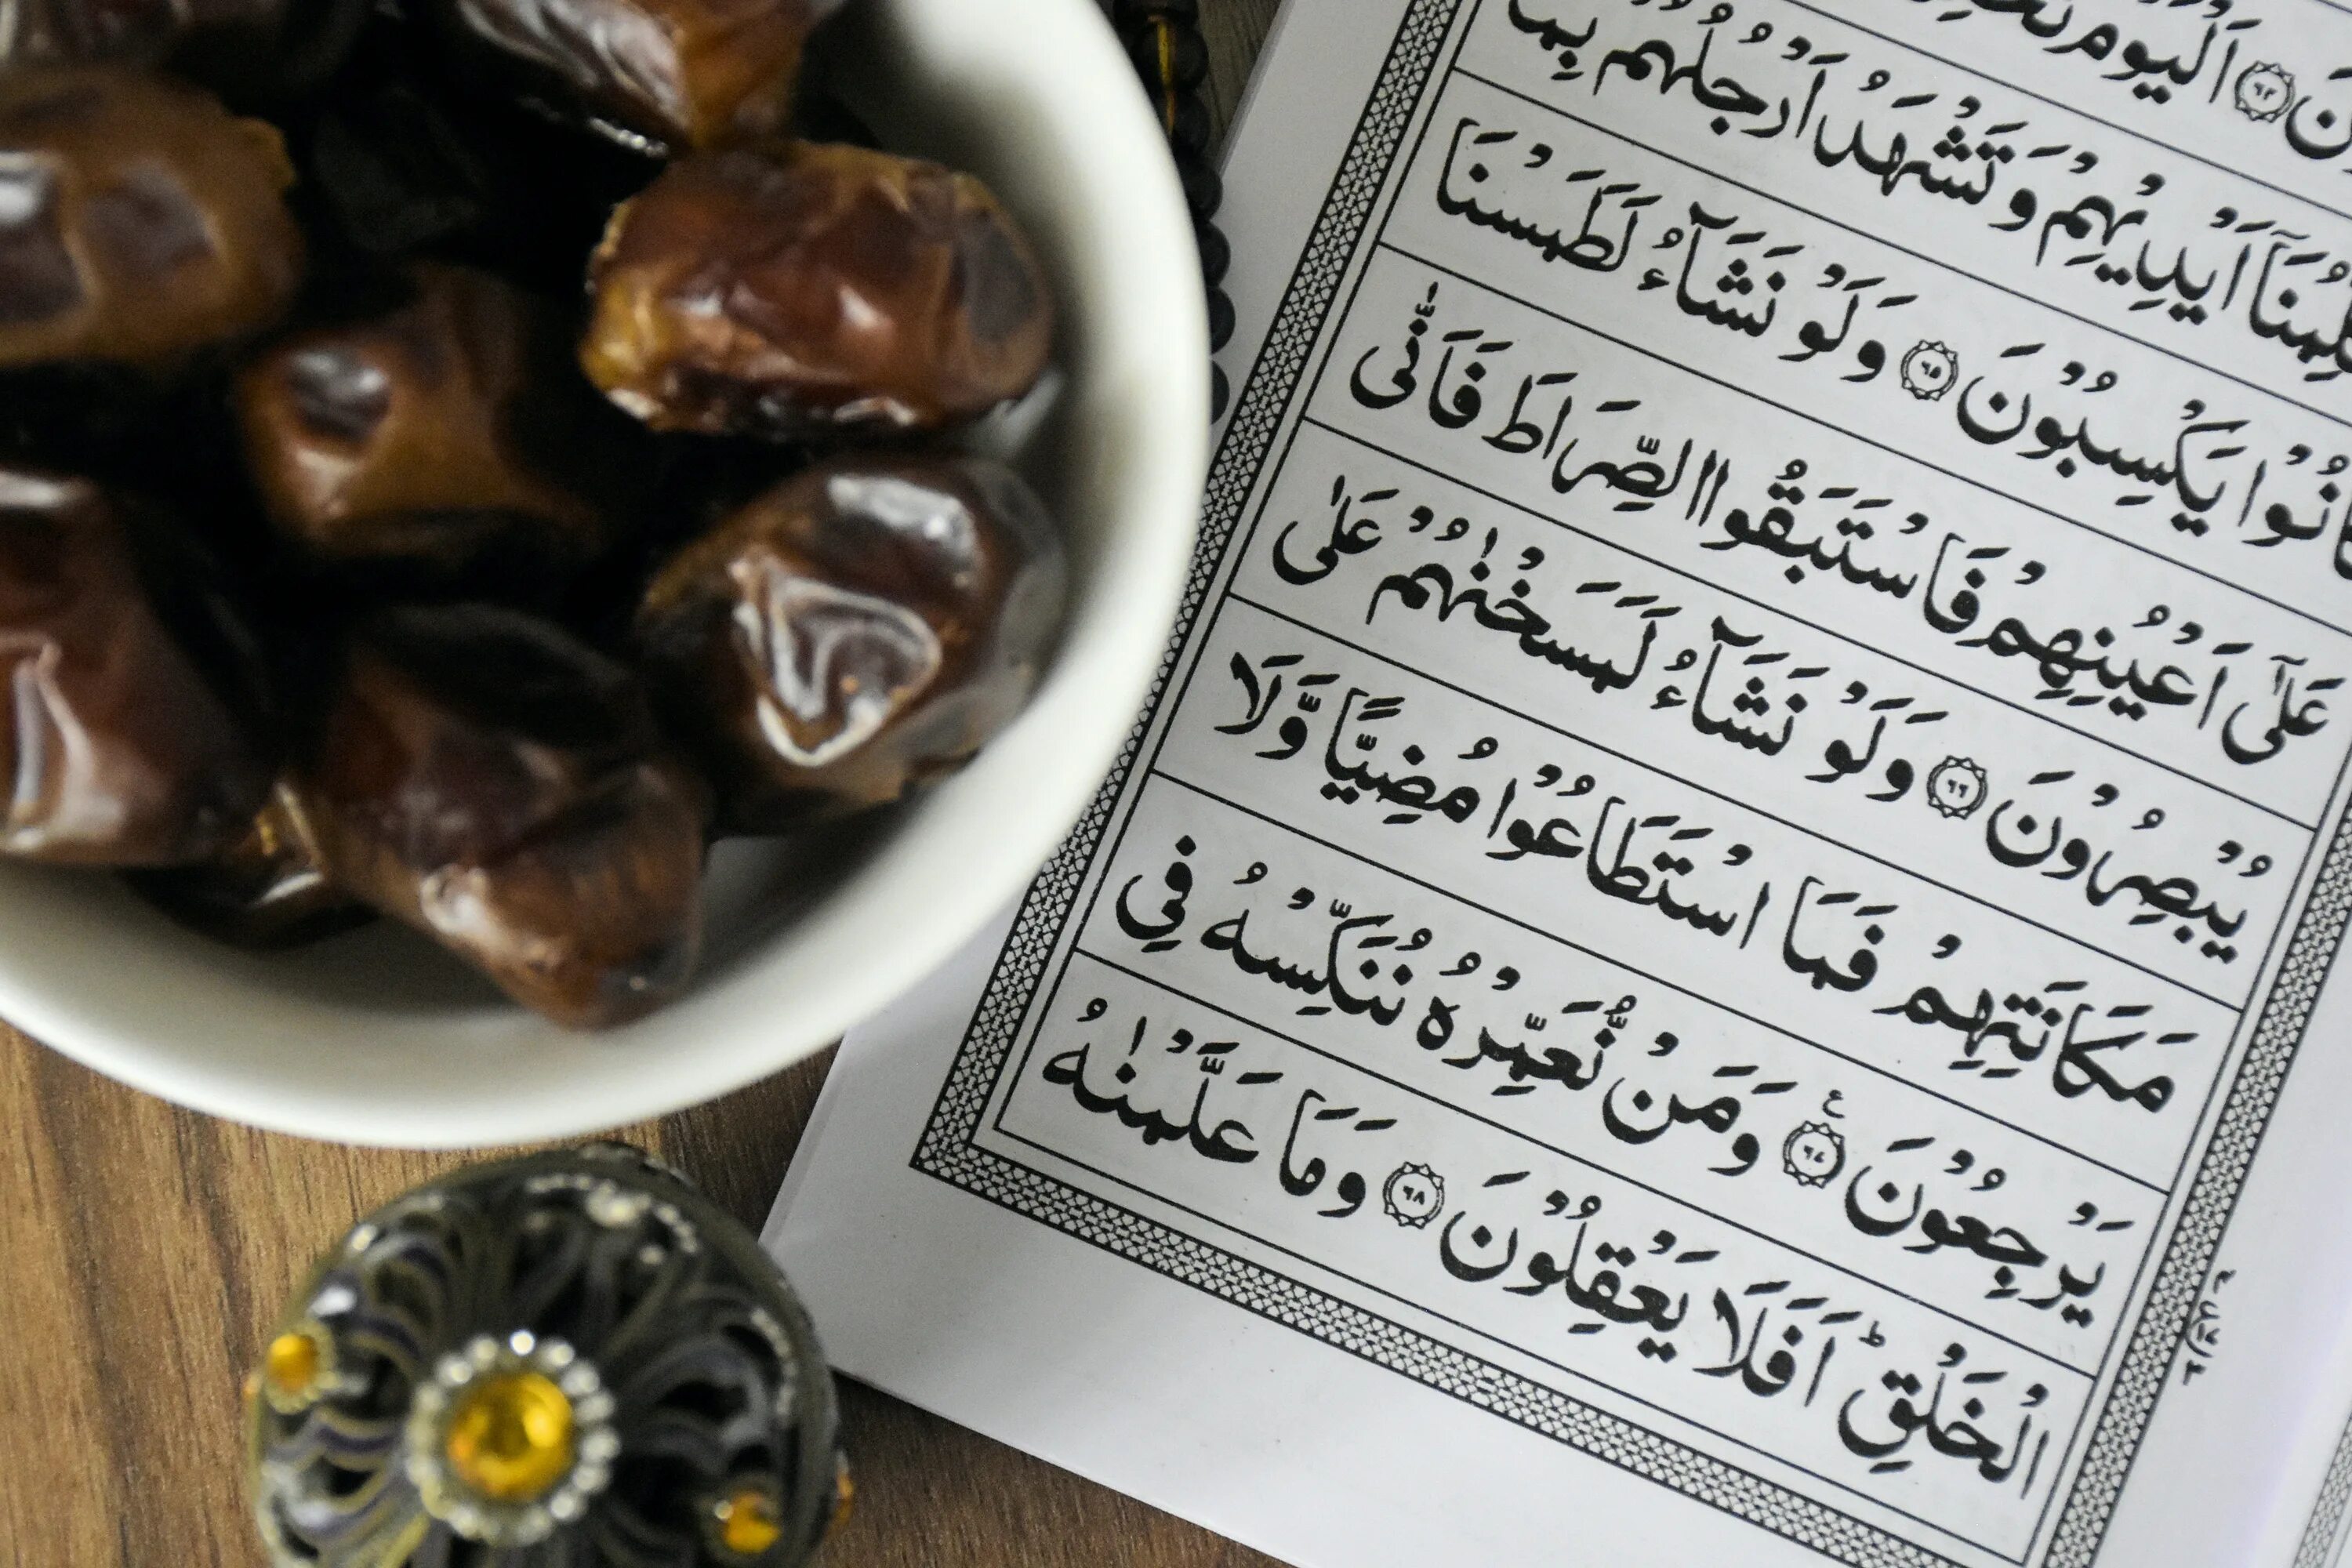 اَلْيَوْمَ
اَيْدِيْهِمْ وَتَشْهَدُ اَرْجُلُهُمْ بِمَا
كَانُوْا يَكْسِبُوْنَ ﴿٦٥﴾ وَلَوْ نَشَآءُ لَطَمَسْنَا
عَلٰٓى اَعْيُنِهِمْ فَاسْتَبَقُوا الصِّرَاطَ فَاَنّٰى
يُبْصِرُوْنَ ﴿٦٦﴾ وَلَوْ نَشَآءُ لَمَسَخْنٰهُمْ عَلٰى
مَكَانَتِهِمْ فَمَا اسْتَطَاعُوْا مُضِيًّا وَّلَا
يَرْجِعُوْنَ ﴿٦٧﴾ ع وَمَنْ نُّعَمِّرْهُ نُنَكِّسْهُ فِى
الْخَلْقِ ؕ اَفَلَا يَعْقِلُوْنَ ﴿٦٨﴾ وَمَا عَلَّمْنٰهُ